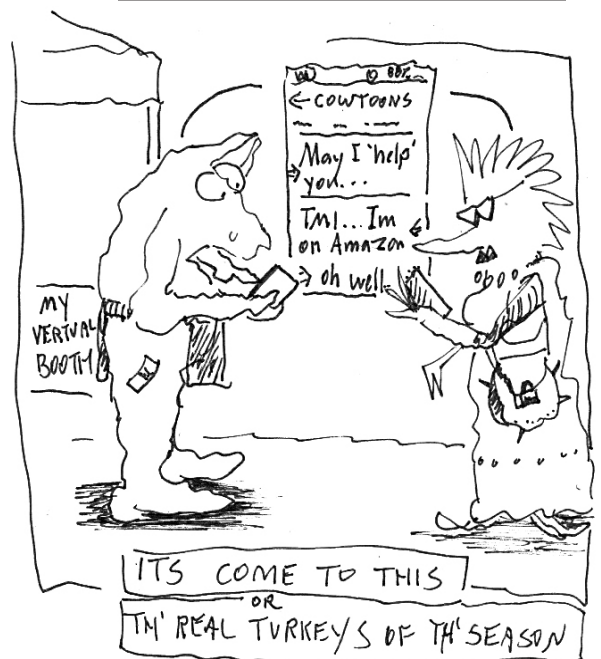 ← COWTOONS
May I 'help'
you...
TMI... Im
on Amazon
oh well
MY
VERTUAL
BOOTH
ITS COME TO THIS
OR
TH' REAL TURKEYS OF TH' SEASON